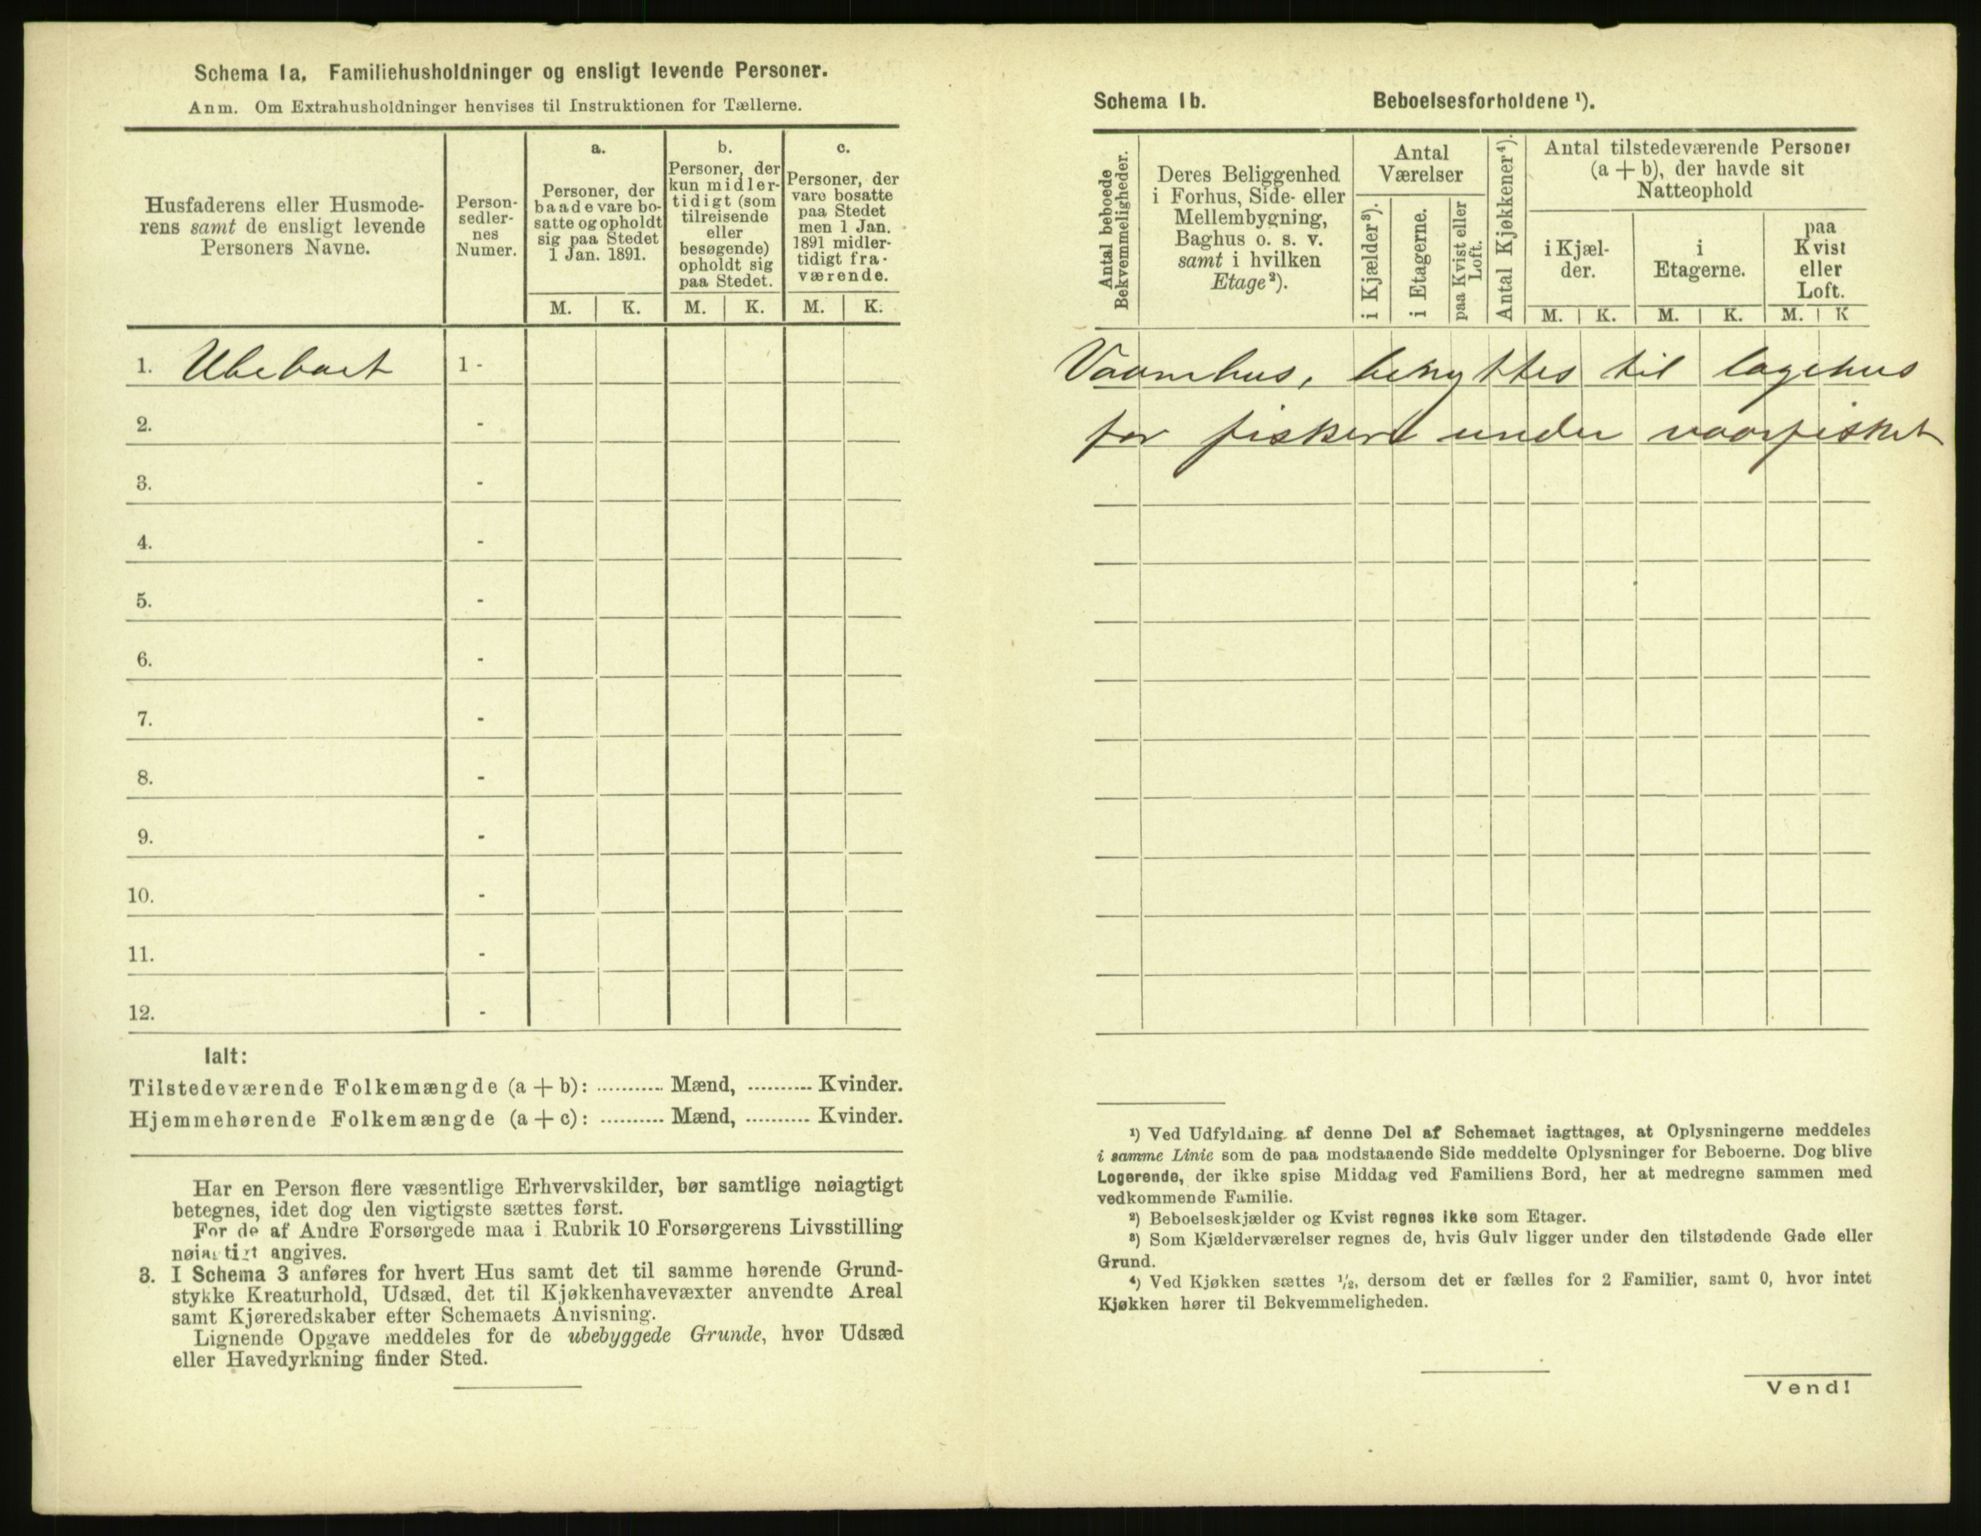 Schema 1a. Familiehusholdninger og ensligt levende Personer.
Anm. Om Extrahusholdninger henvises til Instruktionen for Tællerne.
Husfaderens eller Husmode-
rens samt de ensligt levende
Personers Navne.
Person-
sedler-
nes
Numer.
a.
Personer, der
baade vare bo-
satte og opholdt
sig paa Stedet
1 Jan. 1891.
b.
Personer, der
kun midler-
tidigt (som
tilreisende
eller
besøgende)
opholdt sig
paa Stedet.
c.
Personer, der
vare bosatte
paa Stedet
men 1 Jan.
1891 midler-
tidigt fra-
værende.
M. K. M. K. M. K.
1. Ubeboet 1 -
2. -
3. -
4. -
5. -
6. -
7. -
8. -
9. -
10. -
11. -
12. -
Ialt:
Tilstedeværende Folkemængde (a + b): ........... Mænd, ........... Kvinder.
Hjemmehørende Folkemængde (a + c): ........... Mænd, ........... Kvinder.
Har en Person flere væsentlige Erhvervskilder, bør samtlige nøiagtigt
betegnes, idet dog den vigtigste sættes først.
For de af Andre Forsørgede maa i Rubrik 10 Forsørgerens Livsstilling
nøiagtigt angives.
3. I Schema 3 anføres for hvert Hus samt det til samme hørende Grund-
stykke Kreaturhold, Udsæd, det til Kjøkkenhavevæxter anvendte Areal
samt Kjøreredskaber efter Schemaets Anvisning.
Lignende Opgave meddeles for de ubebyggede Grunde, hvor Udsæd
eller Havedyrkning finder Sted.
Schema 1b. Beboelsesforholdene ¹).
Antal beboede
Bekvemmeligheder.
Deres Beliggenhed
i Forhus, Side- eller
Mellembygning,
Baghus o. s. v.
samt i hvilken
Etage ²).
Antal
Værelser
i Kjælder ³).
i Etagerne.
paa Kvist eller
Loft.
Antal Kjøkkener ⁴).
Antal tilstedeværende Personer
(a + b), der havde sit
Natteophold
i Kjæl-
der.
i
Etagerne.
paa
Kvist
eller
Loft.
M. K. M. K. M. K
Vaanhus, benyttes til logehus
for fiskere under vaarfisket
¹) Ved Udfyldning af denne Del af Schemaet iagttages, at Oplysningerne meddeles
i samme Linie som de paa modstaaende Side meddelte Oplysninger for Beboerne. Dog blive
Logerende, der ikke spise Middag ved Familiens Bord, her at medregne sammen med
vedkommende Familie.
²) Beboelseskjælder og Kvist regnes ikke som Etager.
³) Som Kjælderværelser regnes de, hvis Gulv ligger under den tilstødende Gade eller
Grund.
⁴) Ved Kjøkken sættes ½, dersom det er fælles for 2 Familier, samt 0, hvor intet
Kjøkken hører til Bekvemmeligheden.
Vend!